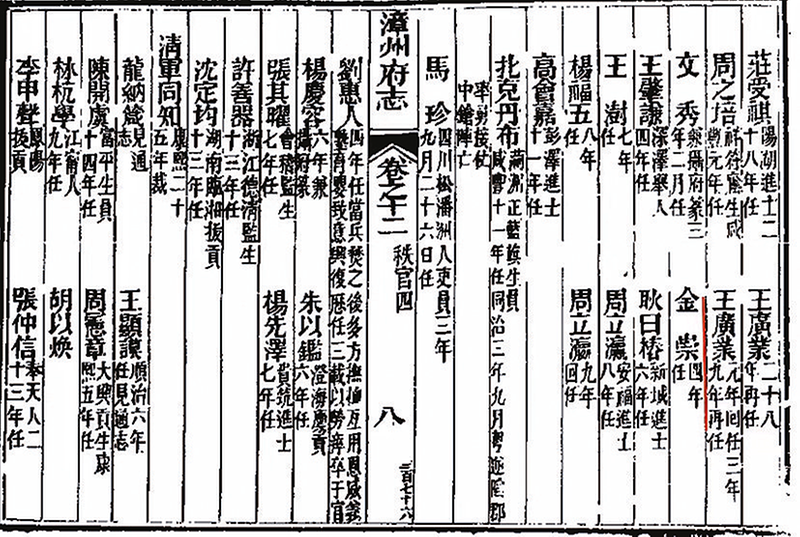 莊受祺 陽湖進士二十八年任
王廣業 二十八年再任
周之培 任
王廣業 元年回任三年九年再任
文秀 兼攝府篆三年二月任
金崇 四年任
王肇謙 深澤舉人四年任
耿曰椿 新城進士六年任
王樹 七年任
周立瀛 安福進士七年任
楊福五 八年任
周立瀛 九年回任
高會嘉 彭澤進士十一年任
扎克丹布 滿洲正藍旗生員咸豐十一年任同治三年九月粵逆陷郡
率勇接仗中鎗陣亡
馬珍 四川松潘人吏員三年九月二十六日任
漳州府志 卷之十二 秩官四 八
三百七十六
劉惠人 四年任當兵焚之後多方撫揗互用恩威義
年任三載以勞瘁卒于官
楊慶容 六年兼
朱以鑑 澄海廩貢六年任
張其曜 會稽監生
楊先澤 貴筑進士七年任
許善器 浙江德清監生十三年任
沈定均 湖南臨湘拔貢十三年任
清軍同知 康熙二十五年裁
龍納銘 見通志
王顯謨 順治六年任見通志
陳開虞 富平生員十四年任
周憲章 大興貢生康熙五年任
林杭學 江南人九年任
胡以煥
李申聲 鳳陽拔貢
張仲信 奉天人二十三年任